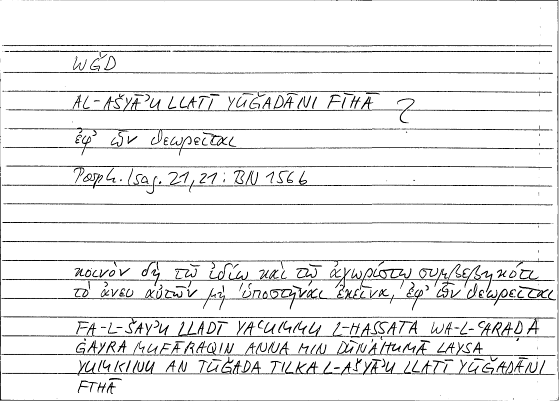 WǦD
AL-AŠYĀʾU LLATĪ YŪǦADĀNI FĪHĀ
ἐφ᾽ ὧν θεωρεῖται
Porph. Isag. 21, 21: BN 156b
κοινὸν δὴ τῷ ἰδίῳ καὶ τῷ ἀχωρίστῳ συμβεβηκότι
τὸ ἄνευ αὐτῶν μὴ ὑποστῆναι ἐκεῖνα, ἐφ᾽ ὧν θεωρεῖται
FA-L-ŠAYʾU LLADĪ YAʿUMMU L-HĀSSATA WA-L-ʿARADA
ĠAYRA MUFĀRAQIN ANNA MIN DŪNĀHUMĀ LAYSA
YUMKINU AN TŪǦADA TILKA L-AŠYĀʾU LLATĪ YŪǦADĀNI
FĪHĀ